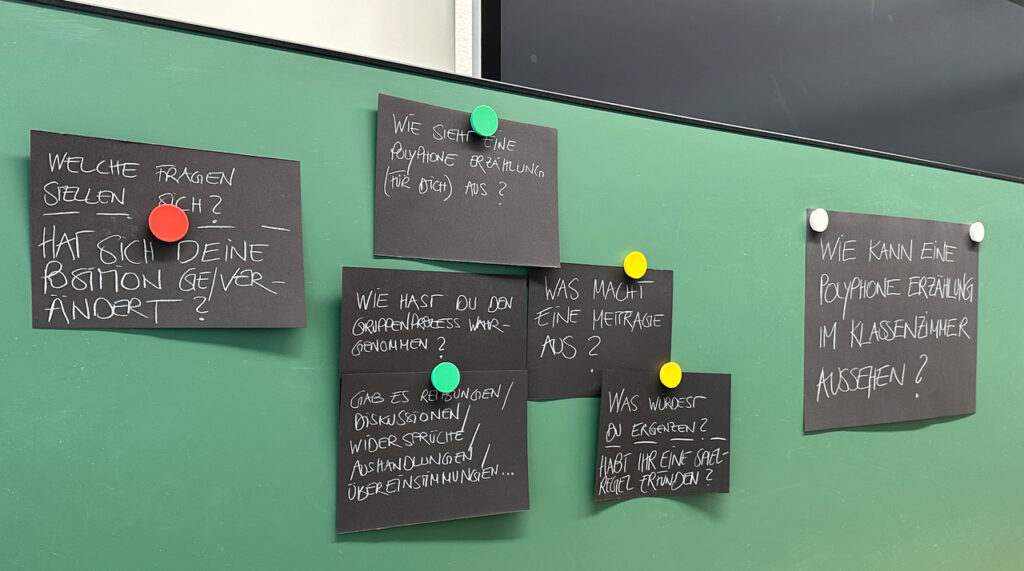 WELCHE FRAGEN
STELLEN SICH?
HAT SICH DEINE
POSITION GE/VER-
ÄNDERT?
WIE SIEHT EINE
POLYPHONE ERZÄHLUNG
(FÜR DICH) AUS?
WIE HAST DU DEN
GRUPPENPROZESS WAHR-
GENOMMEN?
GAB ES REIBUNGEN/
DISKUSSIONEN/
WIDERSPRÜCHE/
AUSHANDLUNGEN/
ÜBEREINSTIMMUNGEN...
WAS MACHT
EINE
AUS?
WAS WÜRDEST
DU ERGENZEN?
HABT IHR EINE SPIEL-
REGEL ERFUNDEN?
WIE KANN EINE
POLYPHONE ERZÄHLUNG
IM KLASSENZIMMER
AUSSEHEN?